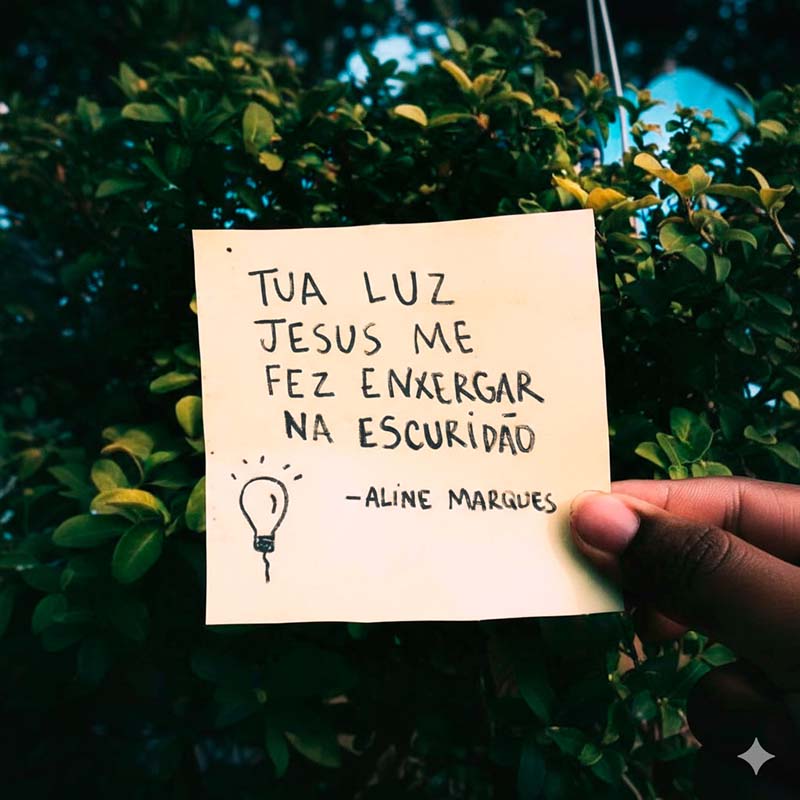 TUA LUZ
JESUS ME
FEZ ENXERGAR
NA ESCURIDÃO
-ALINE MARQUES